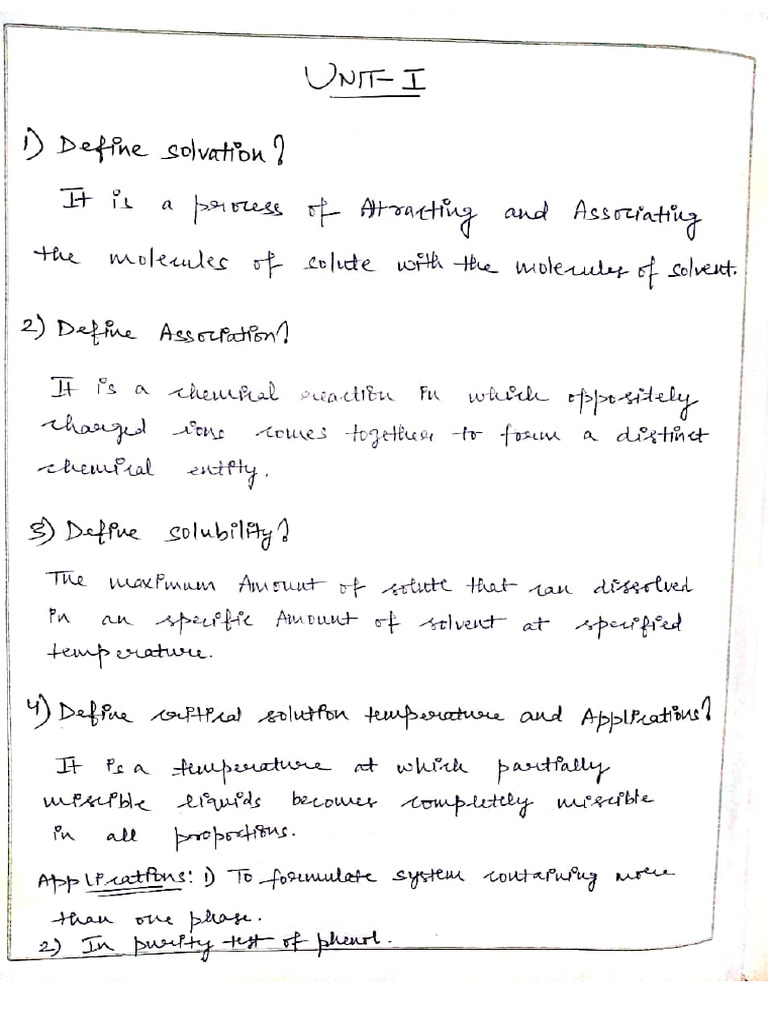 UNIT-I
1) Define solvation?
It is a process of Attracting and Associating
the molecules of solute with the molecules of solvent.
2) Define Association?
It is a chemical reaction in which oppositely
charged ions comes together to form a distinct
chemical entity.
3) Define solubility?
The maximum Amount of solute that can dissolved
in an specific Amount of solvent at specified
temperature.
4) Define critical solution temperature and Applications?
It is a temperature at which partially
miscible liquids becomes completely miscible
in all proportions.
Applications: 1) To formulate system containing more
than one phase.
2) In purity test of phenol.